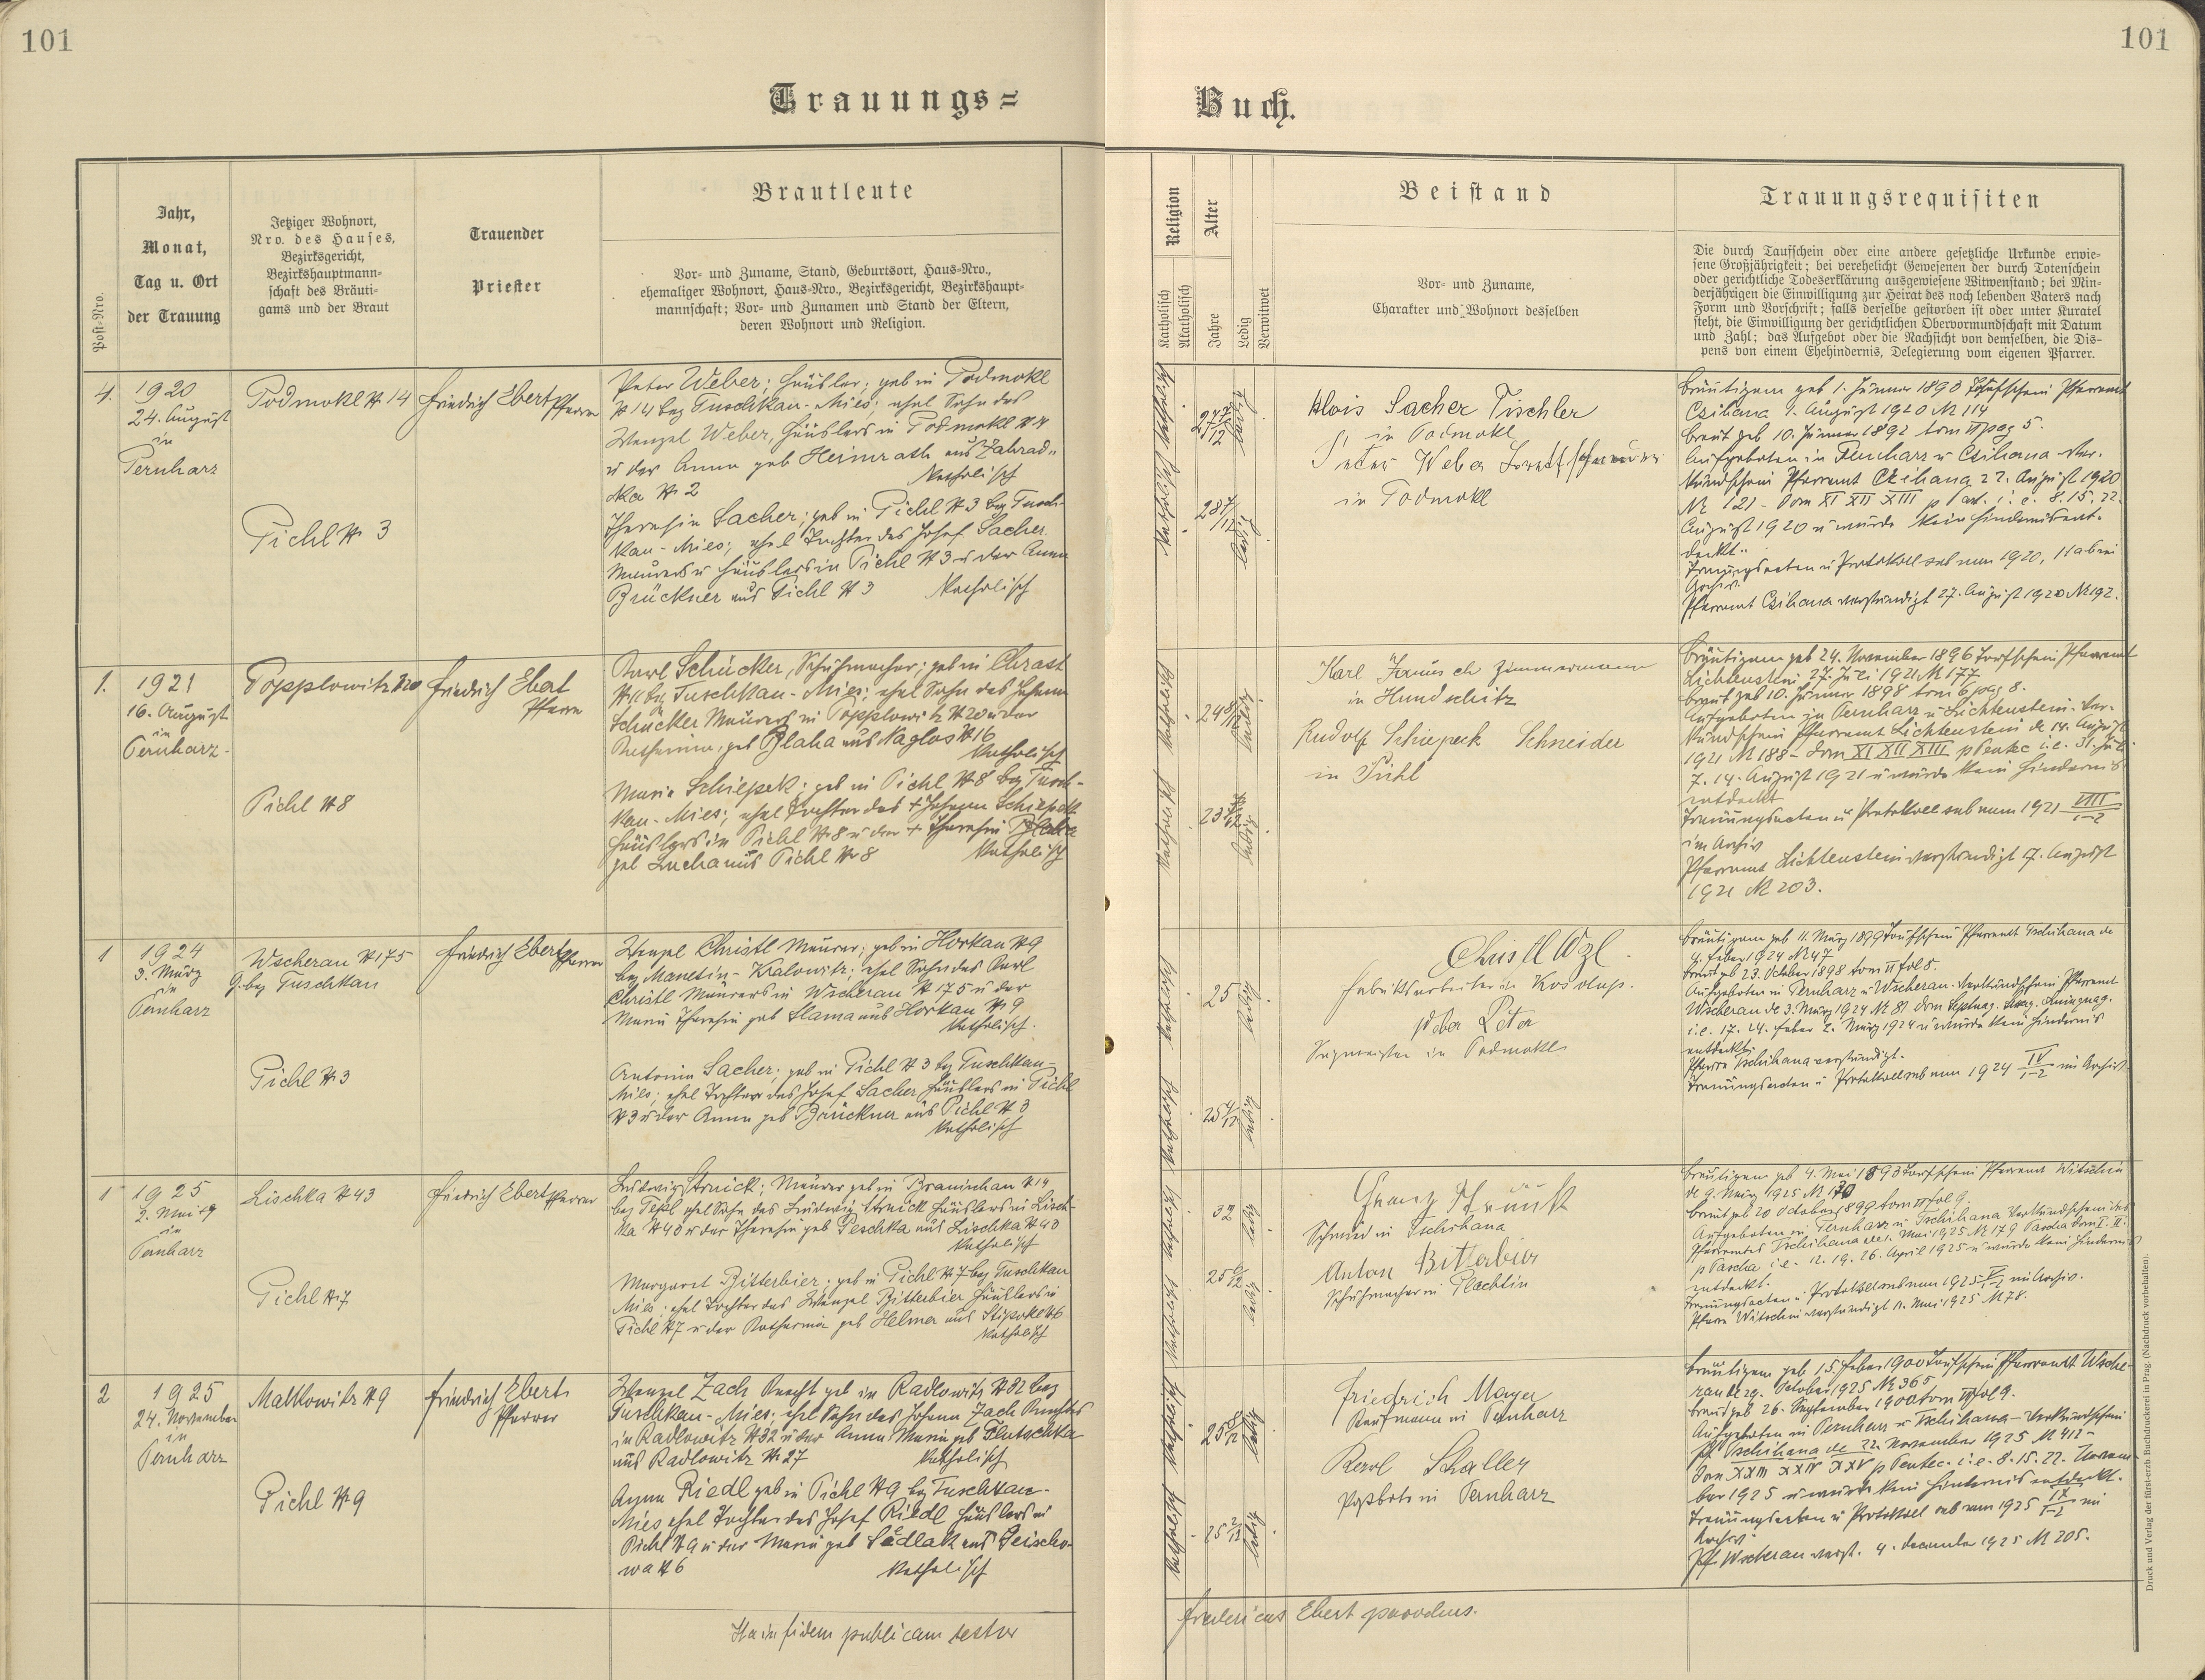 101
101
Trauungs=
Buch.
Post-Nro.
Jahr,
Monat,
Tag u. Ort
der Trauung
Jetziger Wohnort,
Nro. des Hauses,
Bezirksgericht,
Bezirkshauptmann-
schaft des Bräuti-
gams und der Braut
Trauender
Priester
Brautleute
Vor- und Zuname, Stand, Geburtsort, Haus-Nro.,
ehemaliger Wohnort, Haus-Nro., Bezirksgericht, Bezirkshaupt-
mannschaft; Vor- und Zunamen und Stand der Eltern,
deren Wohnort und Religion.
Religion
Katholisch
Akatholisch
Alter
Jahre
Ledig
Verwitwet
Beistand
Vor- und Zuname,
Charakter und Wohnort desselben
Trauungsrequisiten
Die durch Taufschein oder eine andere gesetzliche Urkunde erwie-
sene Großjährigkeit; bei verehelicht Gewesenen der durch Totenschein
oder gerichtliche Todeserklärung ausgewiesene Witwenstand; bei Min-
derjährigen die Einwilligung zur Heirat des noch lebenden Vaters nach
Form und Vorschrift; falls derselbe gestorben ist oder unter Kuratel
steht, die Einwilligung der gerichtlichen Obervormundschaft mit Datum
und Zahl; das Aufgebot oder die Nachsicht von demselben, die Dis-
pens von einem Ehehindernis, Delegierung vom eigenen Pfarrer.
4.
1920
24. August
in
Pernharz
Podmokl N 14
Pichl N 3
Friedrich Ebert
Pfarrer
Peter Weber; Häusler; geb in Podmokl
N 14 bez Tuschkau-Mies; ehel Sohn des
Wenzel Weber, Häuslers in Podmokl N 14
u der Anna geb Heimrath aus Zahrad-
ka N 2 Katholisch
Theresia Sacher; geb in Pichl N 3 bez Tusch-
kau-Mies; ehel Tochter des Josef Sacher
Maurers u Häuslers in Pichl N 3 u der Anna
Brückner aus Pichl N 3 Katholisch
27 7/12
ledig
28 7/12
ledig
Alois Sacher Tischler
in Podmokl
Peter Weber
in Podmokl
Bräutigam geb 1. Jänner 1893 Taufschein Pfarramt
Czihana 1. August 1920 N 114
Braut geb 10. Jänner 1892 tom II pag 5.
Aufgeboten in Pernharz u Czihana Ver-
kündschein Pfarramt Czihana 22. August 1920
N 121 - Dom XI XII XIII p Pent. i. e. 8. 15. 22.
August 1920 u wurde kein Hindernis ent-
deckt.
Trauungsacten u Protokoll sub num 1920, II ab im
Archiv.
Pfarramt Czihana verständigt 27. August 1920 N 192.
1.
1921
16. August
in
Pernharz
Popplowitz N 20
Pichl N 8
Friedrich Ebert
Pfarrer
Karl Schücker, Schuhmacher; geb in Chrast
N 11 bez Tuschkau-Mies; ehel Sohn des Johann
Schücker Maurers in Popplowitz N 20 u der
Katharina, geb Blaha aus Naglos N 16
Katholisch
Maria Schiepek; geb in Pichl N 8 bez Tusch-
kau-Mies; ehel Tochter des + Johann Schiepek
Häuslers in Pichl N 8 u der + Theresia
geb Lucha aus Pichl N 8 Katholisch
ledig
ledig
Karl Jaunsch Zimmermann
in Hundschitz
Rudolf Schiepeck Schneider
in Pichl
Bräutigam geb 24. November 1896 Taufschein Pfarramt
Lichtenstein 27. Juli 1921 N 177
Braut geb 10. Jänner 1898 tom 6 pag 8.
Aufgeboten in Pernharz u Lichtenstein. Ver-
kündschein Pfarramt Lichtenstein de 14. August
1921 N 188 - Dom XI XII XIII p Pentec i.e. 31. Juli
7. 14. August 1921 u wurde kein Hindernis
entdeckt
Trauungsacten u Protokoll sub num 1921 VIII/1-2
im Archiv
Pfarramt Lichtenstein verständigt 17. August
1921 N 203.
1
1924
3. März
in
Pernharz
Wscherau N 175
G. bez Tuschkau
Pichl N 3
Friedrich Ebert
Pfarrer
Wenzel Christl Maurer; geb in Horkau N 9
bez Manetin-Kralowitz; ehel Sohn des Karl
Christl Maurers in Wscherau N 175 u der
Maria Theresia geb Slama aus Horkau N 9
Katholisch.
Antonia Sacher; geb in Pichl N 3 bez Tuschkau-
Mies; ehel Tochter des Josef Sacher Häuslers in Pichl
N 3 u der Anna geb Brückner aus Pichl N 3
Katholisch
25
ledig
25 4/12
ledig
Christl Wzl.
Fabriksarbeiter in Kosolup.
Peter
Sagmeister in Podmokl
Bräutigam geb 11. März 1899 Taufschein Pfarramt Tschihana de
4. Feber 1924 N 47
Braut geb 23. October 1898 tom II fol 8.
Aufgeboten in Pernharz u Wscherau. Verkündschein Pfarramt
Wscherau de 3. März 1924 N 81 Dom Septuag. Sexag. Quinquag.
i.e. 17. 24. Feber 2. März 1924 u wurde kein Hindernis
entdeckt.
Pfarre Tschihana verständigt.
Trauungsacten u Protokoll sub num 1924 IV/1-2 im Archiv.
1
1925
2. Mai
in
Pernharz
Lischka N 43
Pichl N 7
Friedrich Ebert Pfarrer
Ludwig Struick; Maurer geb in Branischau N 14
bez Tepl ehel Sohn des Ludwig Struick Häuslers in Lisch-
ka N 43 u der Theresia geb Peschka aus Lischka N 43
Katholisch
Margaret Bitterbier; geb in Pichl N 7 bez Tuschkau
Mies; ehel Tochter des Wenzel Bitterbier Häuslers in
Pichl N 7 u der Katharina geb Helmer aus
Katholisch
32
ledig
25 6/12
ledig
Schmied in Tschihana
Anton Bitterbier
Schuhmacher in Plachtin
Bräutigam geb 4. Mai 1893 Taufschein Pfarramt Witschin
de 9. März 1925 N 170
Braut geb 20 October 1899 tom II fol 9.
Aufgeboten in Pernharz u Tschihana Verkündschein des
Pfarramtes Tschihana de 1. Mai 1925 N 179 Pascha Dom I. II.
p Pascha i.e. 12. 19. 26. April 1925 u wurde kein Hindernis
entdeckt.
Trauungsacten u Protokoll sub num 1925 V/1-2 im Archiv.
Pfarre Witschin verständigt 11. Mai 1925 N 78.
2
1925
24. November
in
Pernharz
Malkowitz N 9
Pichl N 9
Friedrich Ebert
Pfarrer
Wenzel Zach Knecht geb in Radlowitz N 32 bez
Tuschkau-Mies; ehel Sohn des Johann Zach Knechtes
in Radlowitz N 32 u der Anna Maria geb
aus Radlowitz N 27 Katholisch
Anna Riedl geb in Pichl N 9 bez Tuschkau-
Mies ehel Tochter des Josef Riedl Häuslers in
Pichl N 9 u der Maria geb Sedlak aus Geischo-
wa N 6 Katholisch
25 9/12
ledig
25 2/12
ledig
Friedrich Mayer
Kaufmann in Pernharz
Karl Schaller
Postbote in Pernharz
Bräutigam geb 15 Feber 1900 Taufschein Pfarramt Wsche-
rau de 29. October 1925 N 365
Braut geb 26. September 1900 tom II fol 9.
Aufgeboten in Pernharz u Tschihana - Verkündschein
Pf Tschihana de 22. November 1925 N 412 -
Dom XXIII XXIV XXV p Pentec. i.e. 8. 15. 22. Novem-
ber 1925 u wurde kein Hindernis entdeckt.
Trauungsacten u Protokoll sub num 1925 IX/1-2 im
Archiv
Pf Wscherau verst. 4. December 1925 N 205.
Ita in fidem publicam testor
Fridericus Ebert parochus.
Druck und Verlag der fürst-erzb. Buchdruckerei in Prag. (Nachdruck vorbehalten).